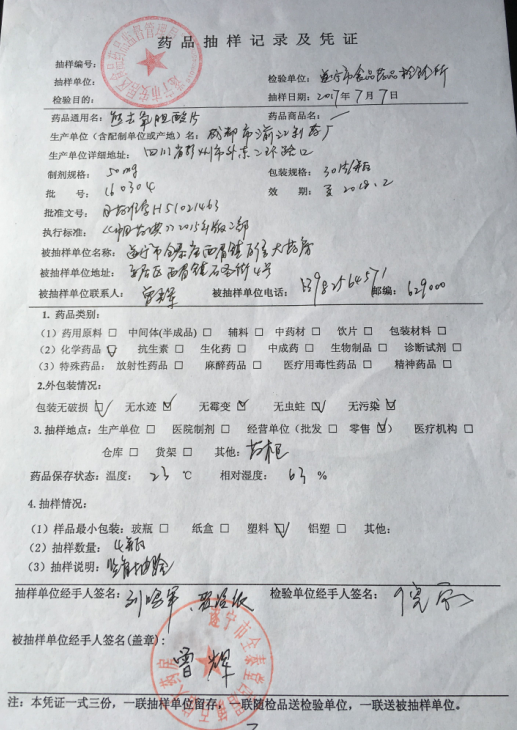 药品抽样记录及凭证
抽样编号:
抽样单位: 检验单位: 遂宁市食品药品检验所
检验目的: 抽样日期: 2017年7月7日
药品通用名: 熊去氧胆酸片 药品商品名: —
生产单位（含配制单位或产地）名: 成都市湔江制药厂
生产单位详细地址: 四川省彭州市外东二环路口
制剂规格: 50mg 包装规格: 30片/瓶
批 号: 160304 效 期: 至2018.2
批准文号: 国药准字H51021463
执行标准: 《中国药典》2015年版二部
被抽样单位名称: 遂宁市 西眉镇 大药房
被抽样单位地址: 西眉镇 4号
被抽样单位联系人: 曾辉 被抽样单位电话: 13982564571 邮编: 629000
1. 药品类别:
（1）药用原料 □ 中间体(半成品) □ 辅料 □ 中药材 □ 饮片 □ 包装材料 □
（2）化学药品 ☑ 抗生素 □ 生化药 □ 中成药 □ 生物制品 □ 诊断试剂 □
（3）特殊药品: 放射性药品 □ 麻醉药品 □ 医疗用毒性药品 □ 精神药品 □
2.外包装情况:
包装无破损 ☑ 无水迹 ☑ 无霉变 ☑ 无虫蛀 ☑ 无污染 ☑
3. 抽样地点: 生产单位 □ 医院制剂 □ 经营单位（批发 □ 零售 ☑） 医疗机构 □
仓库 □ 货架 □ 其他: 药柜
药品保存状态: 温度: 23 ℃ 相对湿度: 63 %
4. 抽样情况:
（1）样品最小包装: 玻瓶 □ 纸盒 □ 塑料 ☑ 铝塑 □ 其他:
（2）抽样数量: 4瓶
（3）抽样说明: 监督抽验
抽样单位经手人签名: 检验单位经手人签名:
被抽样单位经手人签名(盖章): 曾辉
注: 本凭证一式三份，一联抽样单位留存，一联随检品送检验单位，一联送被抽样单位。